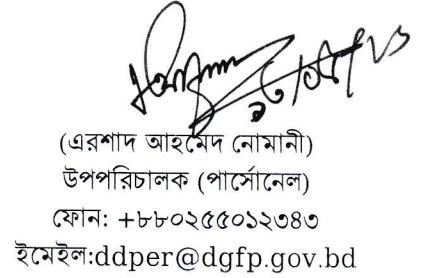 (এরশাদ আহমেদ নোমানী)
উপপরিচালক (পার্সোনেল)
ফোন: +৮৮০২৫৫০১২৩৪৩
ইমেইল:ddper@dgfp.gov.bd